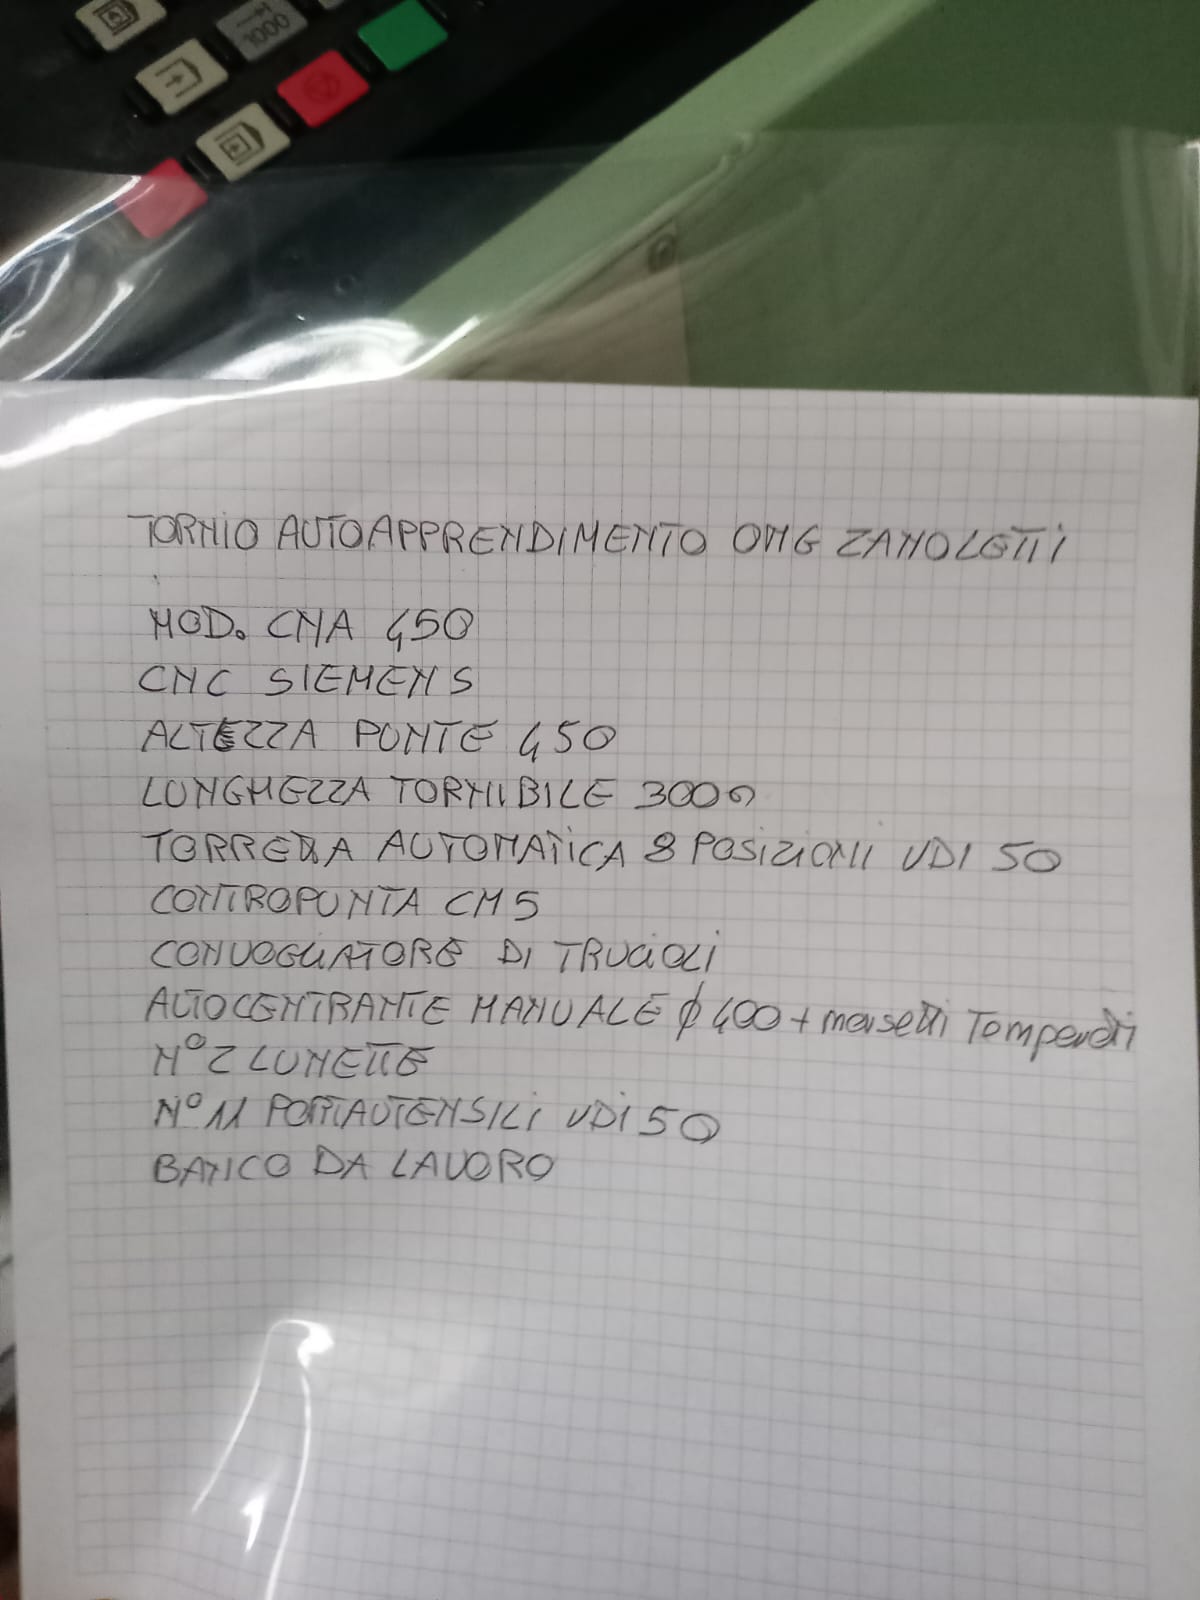 1000
TORNIO AUTOAPPRENDIMENTO OMG ZANOLETTI
MOD. CNA 450
CNC SIEMENS
ALTEZZA PUNTE 450
LUNGHEZZA TORNIBILE 3000
TORRETTA AUTOMATICA 8 POSIZIONI VDI 50
CONTROPUNTA CM5
CONVOGLIATORE DI TRUCIOLI
AUTOCENTRANTE MANUALE ϕ 400 + morsetti Temperati
N° 2 LUNETTE
N° 11 PORTAUTENSILI VDI 50
BANCO DA LAVORO